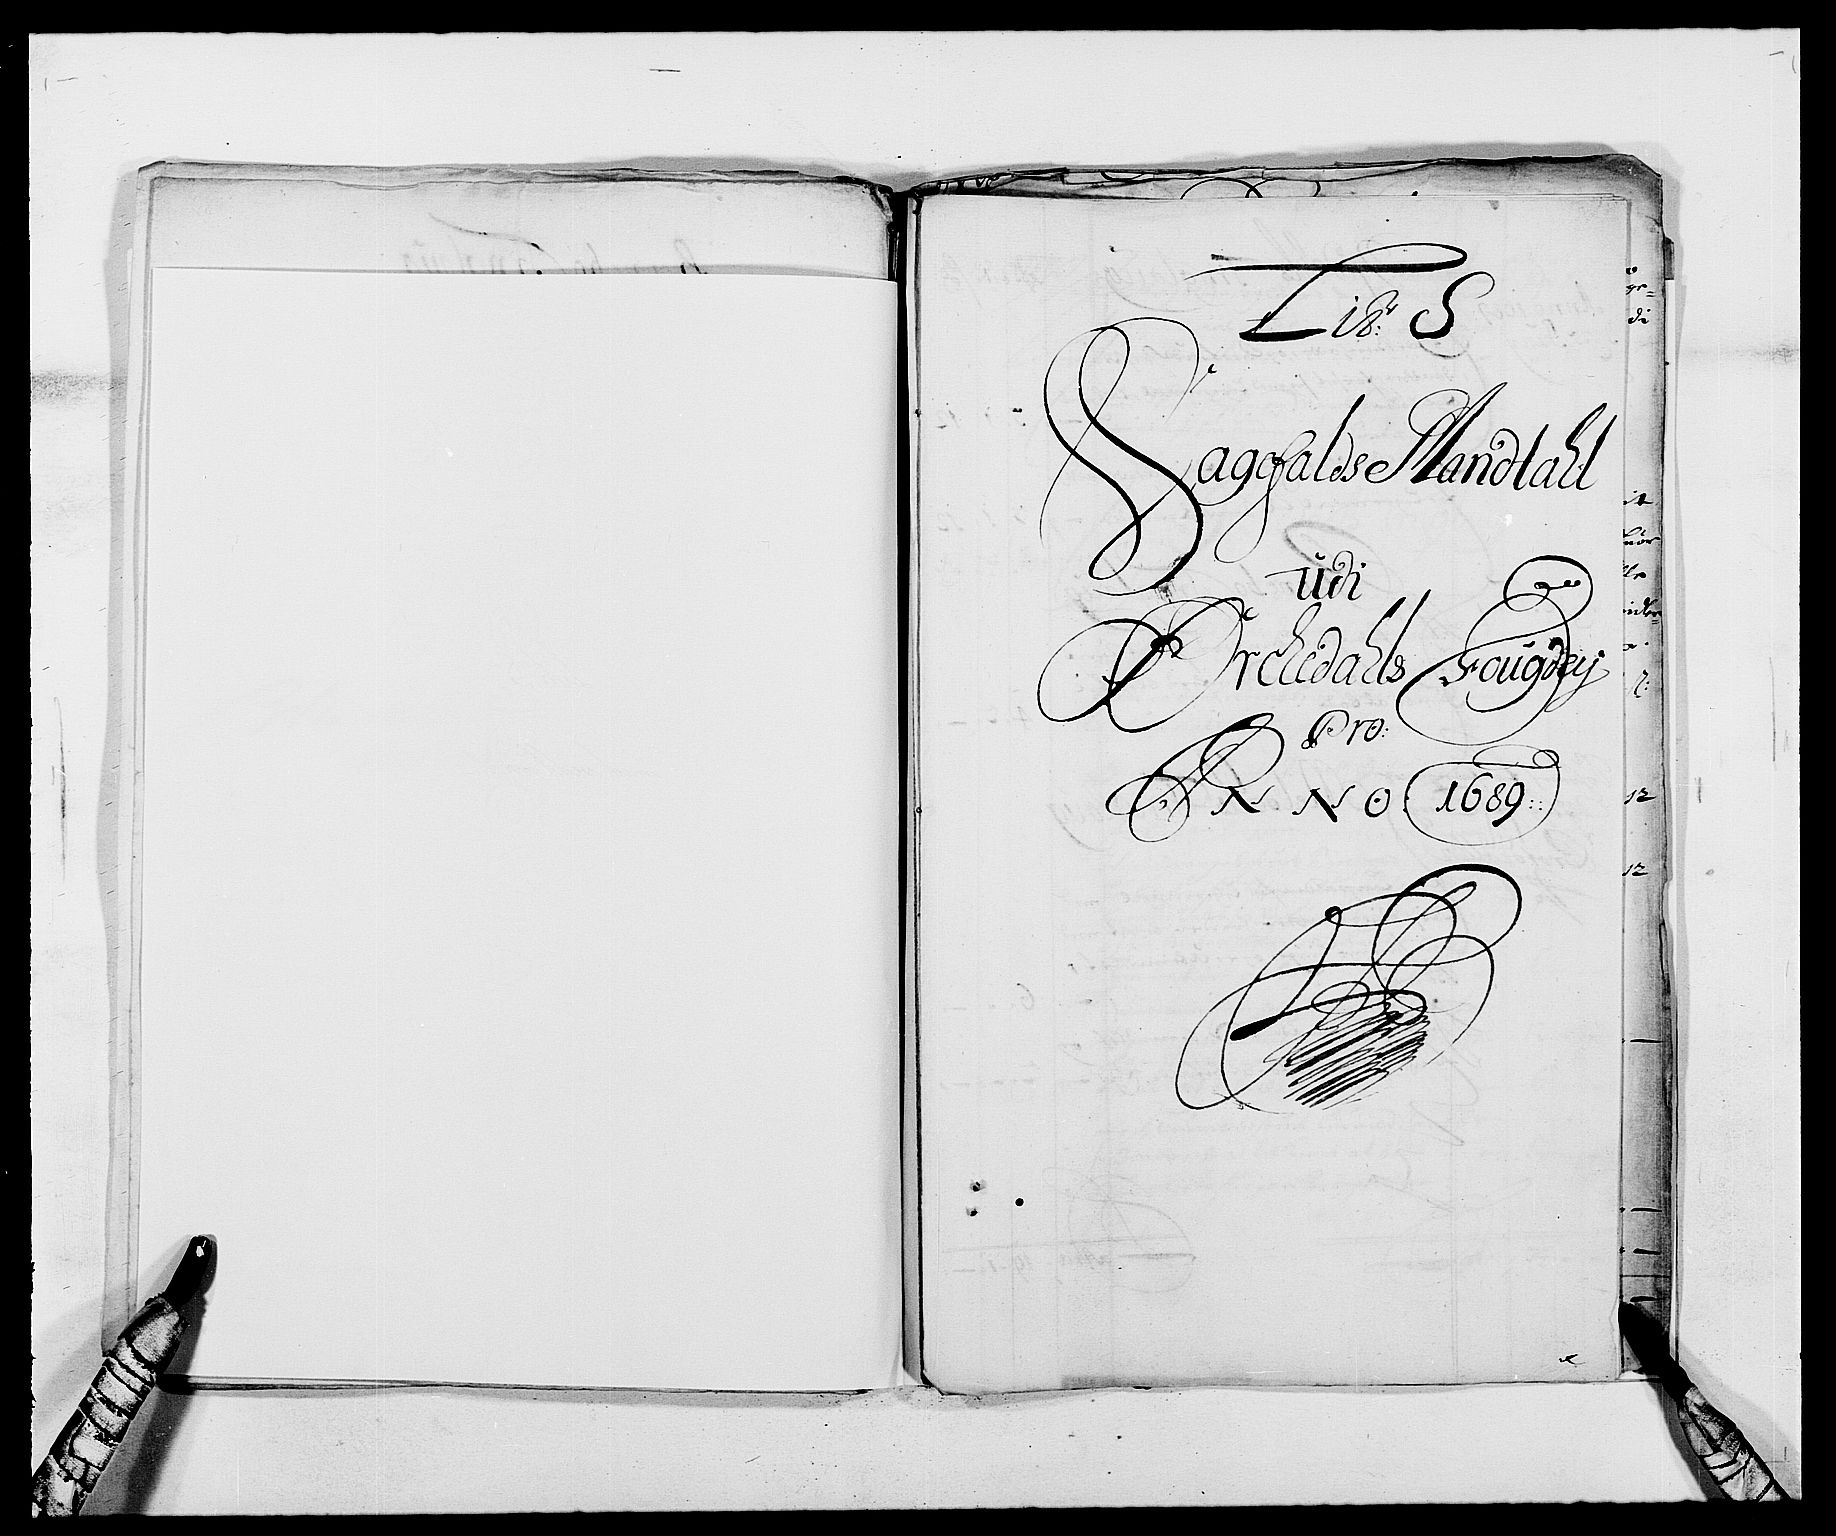 Litr: S
Sagefalds Mandtall
udi
Orchedahls Fougdey
Pro:
ANNO 1689